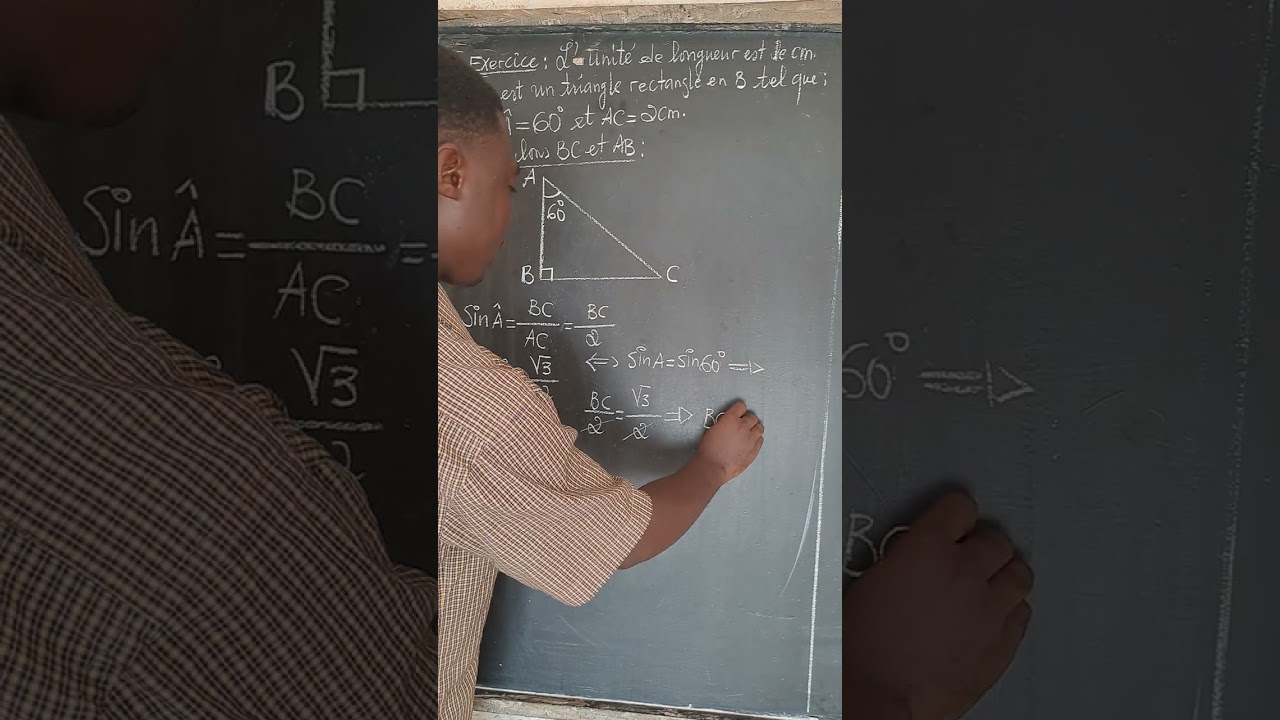 Exercice : L'unité de longueur est le cm.
est un triangle rectangle en B tel que ;
= 60° et AC = 2cm.
lons BC et AB :
A
60°
B
C
Sin Â = BC/AC = BC/2
√3 <=> Sin A = Sin 60° =>
BC/2 = √3/2 => BC
B
Sin Â = BC/AC =
√3
2
60° =>
BC